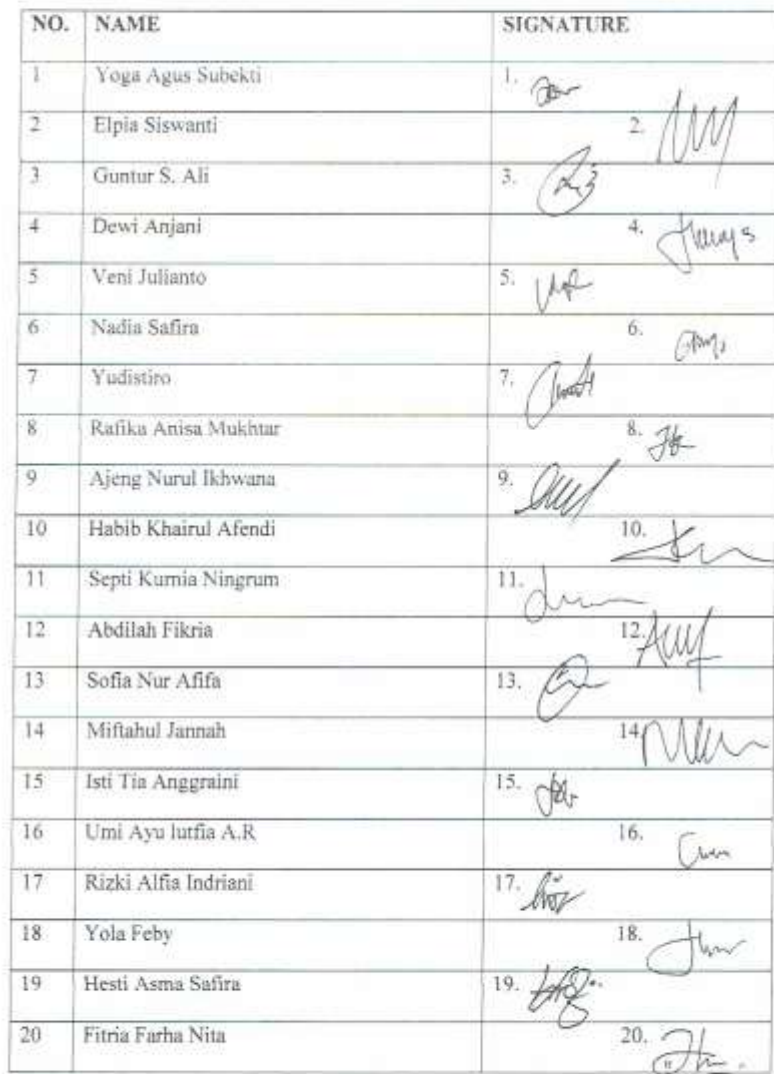 NO. NAME SIGNATURE
1 Yoga Agus Subekti 1.
2 Elpia Siswanti 2.
3 Guntur S. Ali 3.
4 Dewi Anjani 4.
5 Veni Julianto 5.
6 Nadia Safira 6.
7 Yudistiro 7.
8 Rafika Anisa Mukhtar 8.
9 Ajeng Nurul Ikhwana 9.
10 Habib Khairul Afendi 10.
11 Septi Kurnia Ningrum 11.
12 Abdilah Fikria 12.
13 Sofia Nur Afifa 13.
14 Miftahul Jannah 14
15 Isti Tia Anggraini 15.
16 Umi Ayu lutfia A.R 16.
17 Rizki Alfia Indriani 17.
18 Yola Feby 18.
19 Hesti Asma Safira 19.
20 Fitria Farha Nita 20.